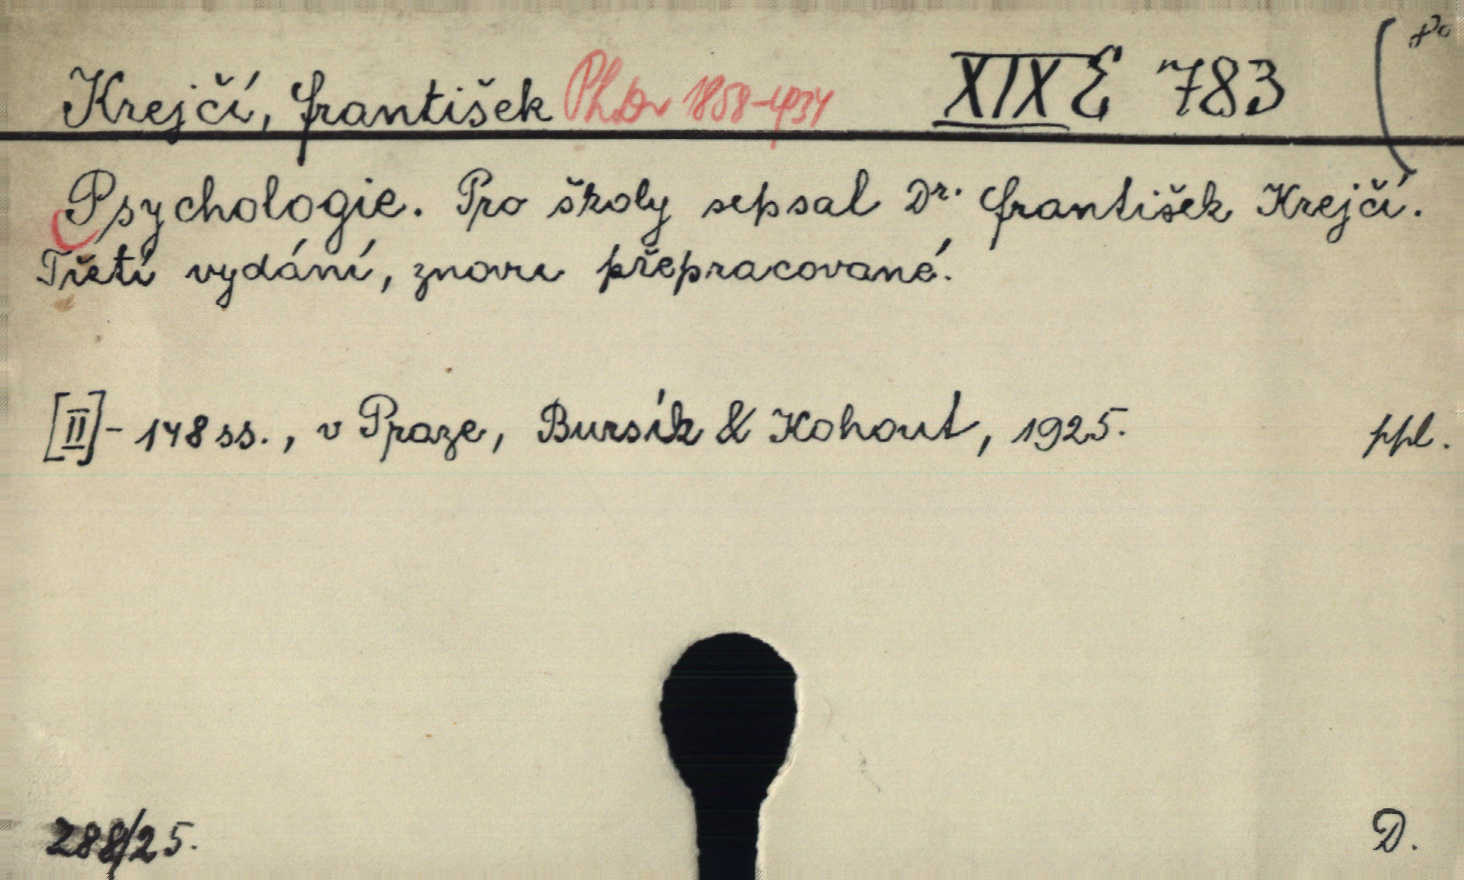 Krejčí, František PhDr 1858-1934 XIX E 783 8°
Psychologie. Pro školy sepsal Dr. František Krejčí.
Třetí vydání, znovu přepracované.
[II]-148 ss., v Praze, Bursík & Kohout, 1925. ppl.
288/25. D.